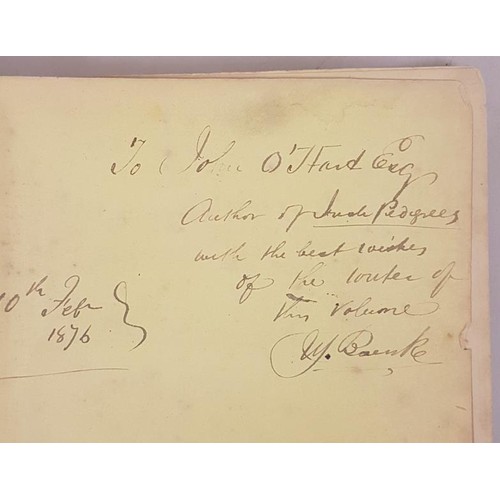 To John O'Hart Esq
Author of Irish Pedigrees
with the best wishes
of the writer of
this volume
10th Feby
1876